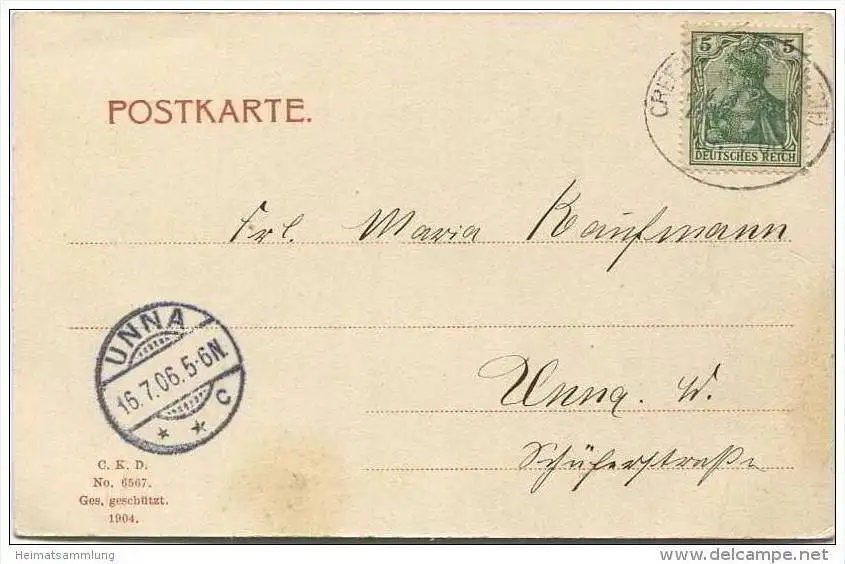 POSTKARTE.
5 5
DEUTSCHES REICH
Frl. Maria Kaufmann
UNNA
16.7.06.5-6N.
* * C
Unna. W.
Schäferstraße
C. K. D.
No. 6567.
Ges. geschützt.
1904.
Heimatsammlung
delcampe.net